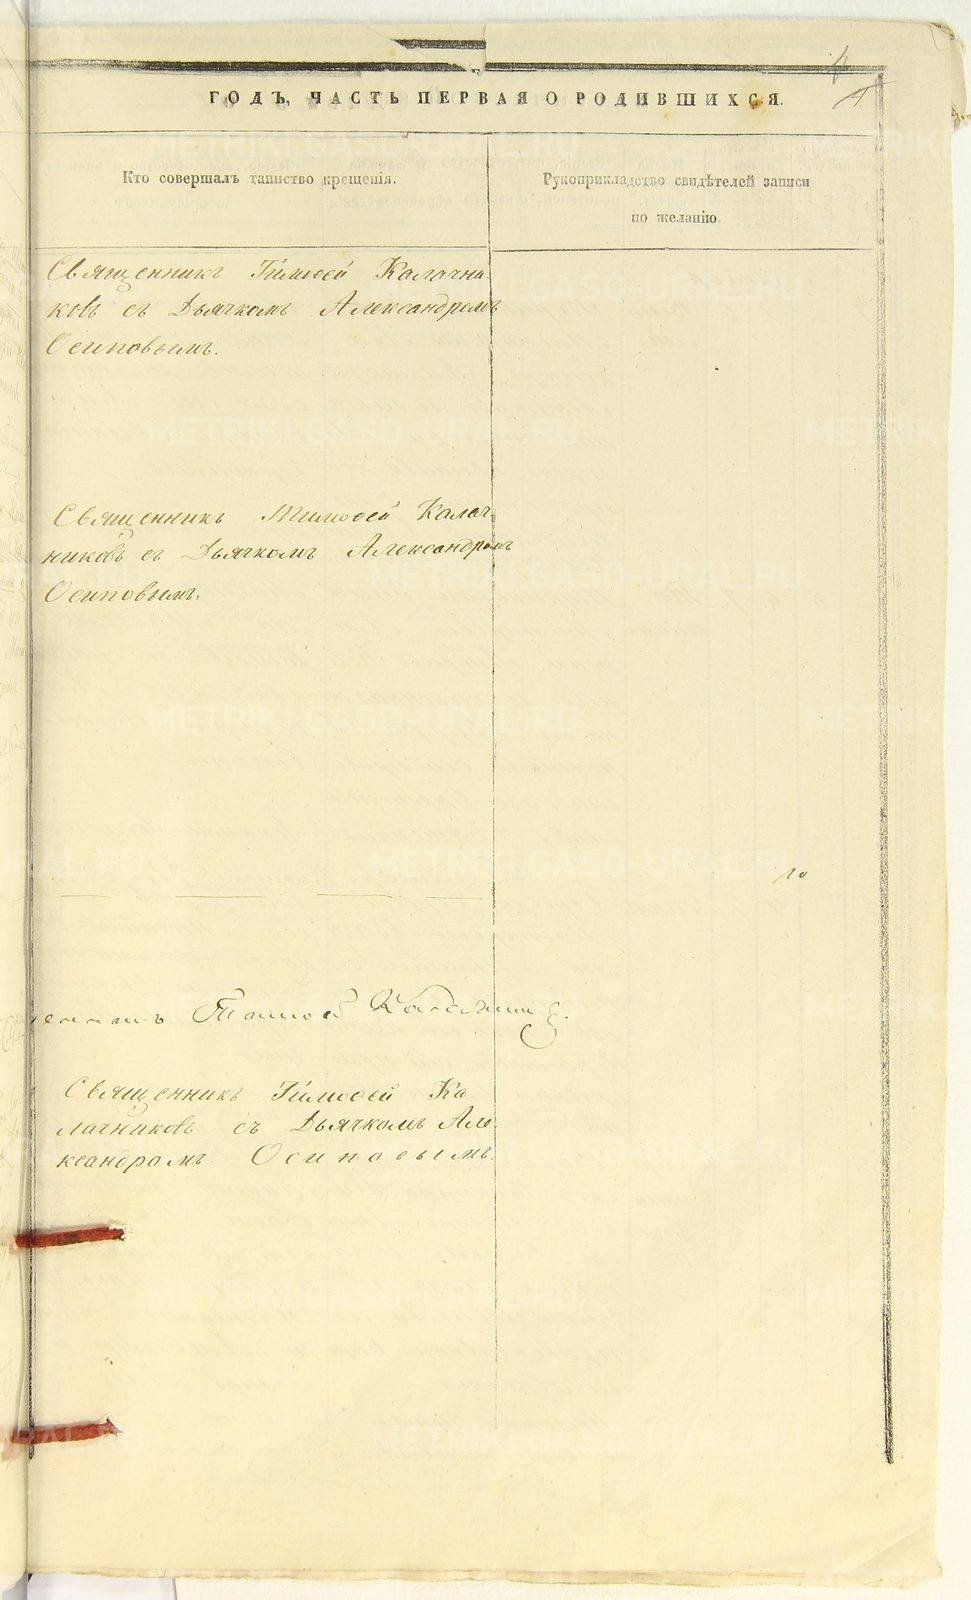 4
ГОДЪ, ЧАСТЬ ПЕРВАЯ О РОДИВШИХСЯ.
Кто совершалъ таинство крещенія.
Рукоприкладство свидѣтелей записи
по желанію
Священникъ Тимоѳей Калачни-
ковъ съ Дьячкомъ Александромъ
Осиповымъ.
Священникъ Тимоѳей Калач-
никовъ съ Дьячкомъ Александромъ
Осиповымъ.
Тимоѳей
Священникъ Тимоѳей Ка
лачниковъ съ Дьячкомъ Але-
ксандромъ Осиповымъ.
METRIKI.GASO-URAL.RU